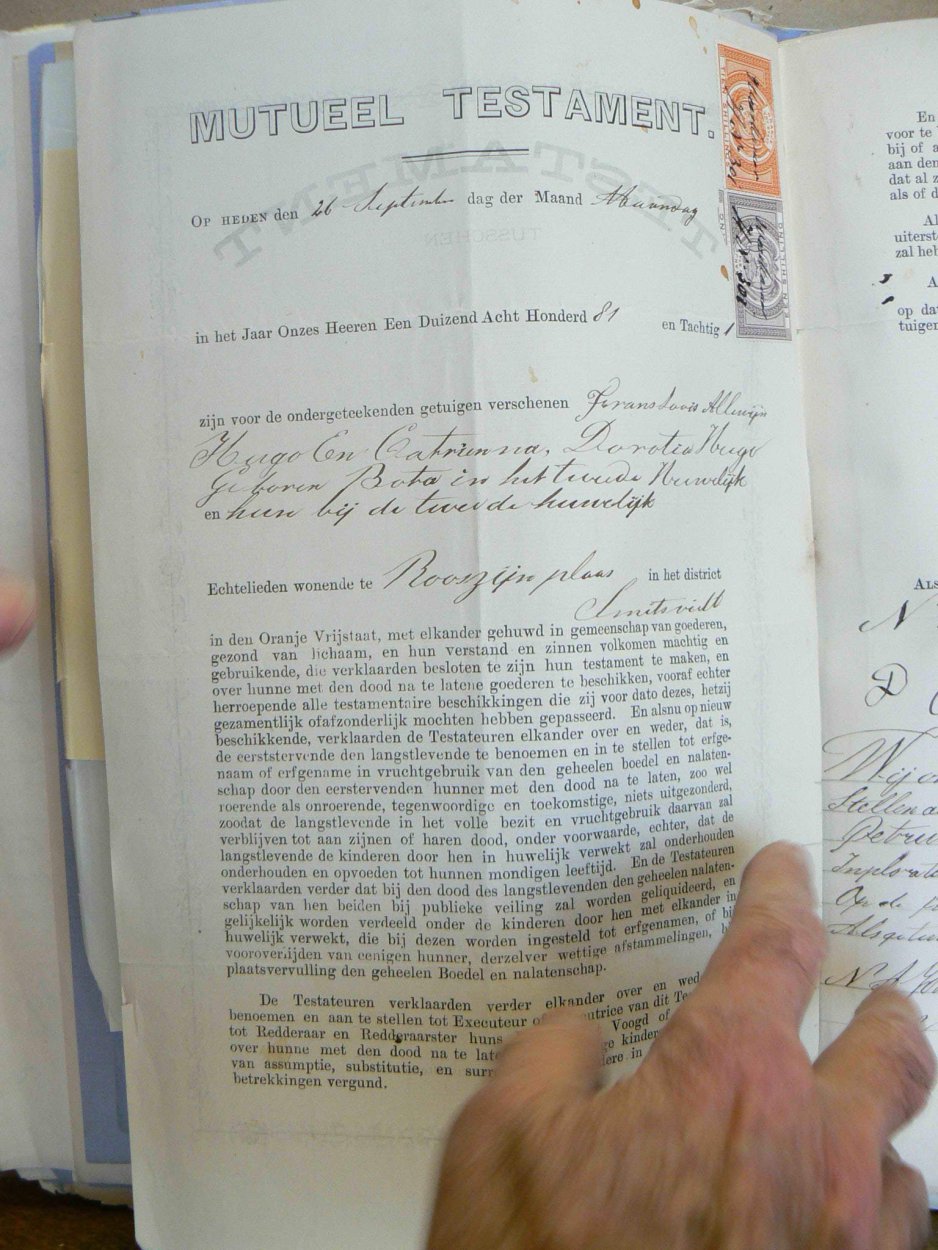 MUTUEEL TESTAMENT.
OP HEDEN den 26 September dag der Maand Maanndag
in het Jaar Onzes Heeren Een Duizend Acht Honderd 81 en Tachtig 1
zijn voor de ondergeteekenden getuigen verschenen Frans Lovis Allewijn
Hugo En Catrienna, Dorotia Hugo
Geboren Bota in het tweede Huwelijk
en hun bij de tweede huwelijk
Echtelieden wonende te Rooszijn plaas in het district
Smitsvidt
in den Oranje Vrijstaat, met elkander gehuwd in gemeenschap van goederen,
gezond van lichaam, en hun verstand en zinnen volkomen machtig en
gebruikende, die verklaarden besloten te zijn hun testament te maken, en
over hunne met den dood na te latene goederen te beschikken, vooraf echter
herroepende alle testamentaire beschikkingen die zij voor dato dezes, hetzij
gezamentlijk ofafzonderlijk mochten hebben gepasseerd. En alsnu op nieuw
beschikkende, verklaarden de Testateuren elkander over en weder, dat is,
de eerststervende den langstlevende te benoemen en in te stellen tot erfge-
naam of erfgename in vruchtgebruik van den geheelen boedel en nalaten-
schap door den eerstervenden hunner met den dood na te laten, zoo wel
roerende als onroerende, tegenwoordige en toekomstige, niets uitgezonderd,
zoodat de langstlevende in het volle bezit en vruchtgebruik daarvan zal
verblijven tot aan zijnen of haren dood, onder voorwaarde, echter, dat de
langstlevende de kinderen door hen in huwelijk verwekt zal onderhouden
onderhouden en opvoeden tot hunnen mondigen leeftijd. En de Testateuren
verklaarden verder dat bij den dood des langstlevenden den geheelen nalaten-
schap van hen beiden bij publieke veiling zal worden geliquideerd, en
gelijkelijk worden verdeeld onder de kinderen door hen met elkander in
huwelijk verwekt, die bij dezen worden ingesteld tot erfgenamen, of bij
vooroverlijden van eenigen hunner, derzelver wettige afstammelingen, b
plaatsvervulling den geheelen Boedel en nalatenschap.
De Testateuren verklaarden verder elkander over en wed
benoemen en aan te stellen tot Executeur of utrice van dit Te
tot Redderaar en Redderaarster huns Voogd of
over hunne met den dood na te late ge kinder
van assumptie, substitutie, en surr dere in
betrekkingen vergund.
EEN SHILLING
En
voor te
bij of a
aan den
dat al z
als of d
Al
uiterst
zal heb
A
op da
tuigen
ALS
N
D
Wij
Stellen
Petrus
Op de p